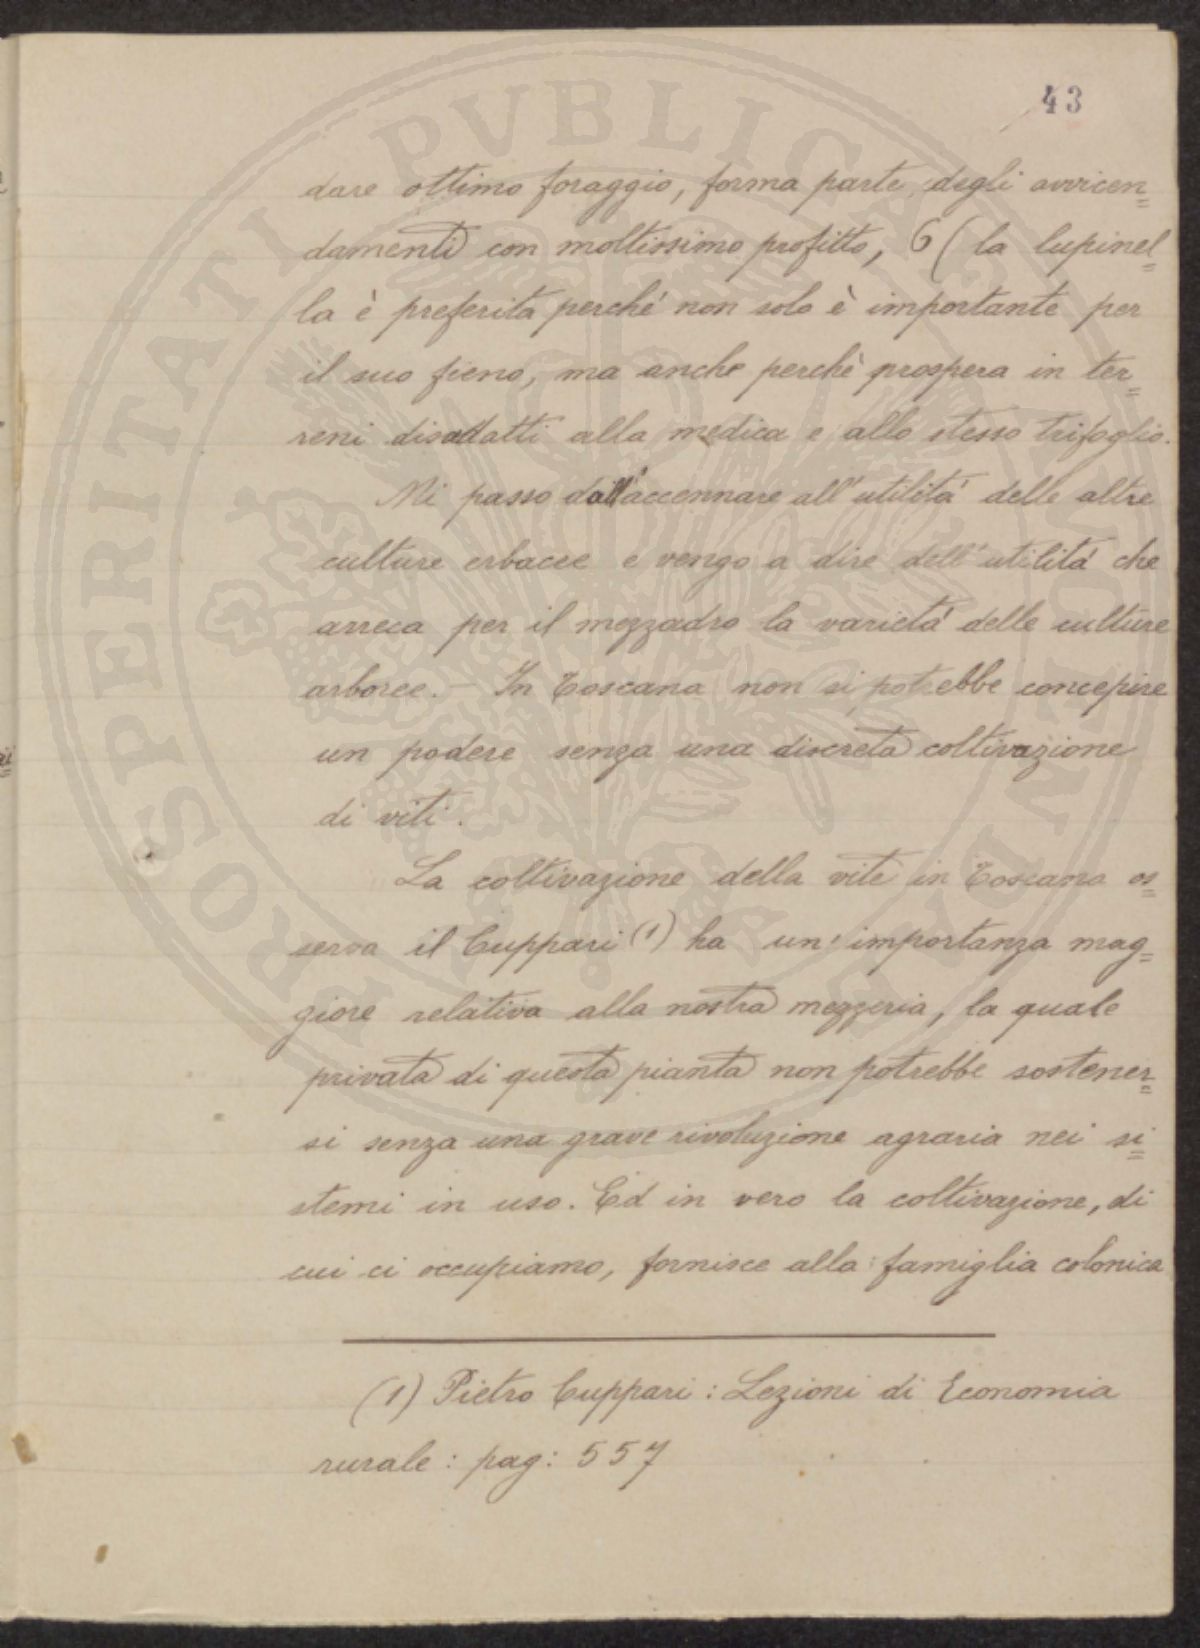 43
dare ottimo foraggio, forma parte degli avvicen=
damenti con moltissimo profitto, 6( la lupinel=
la è preferita perché non solo è importante per
il suo fieno, ma anche perchè prospera in ter=
reni disadatti alla medica e allo stesso trifoglio.
Mi passo dall'accennare all'utilità delle altre
culture erbacee e vengo a dire dell'utilità che
arreca per il mezzadro la varietà delle culture
arboree. - In Toscana non si potrebbe concepire
un podere senza una discreta coltivazione
di viti.
La coltivazione della vite in Toscana os=
serva il Cuppari (1) ha un'importanza mag=
giore relativa alla nostra mezzeria, la quale
privata di questa pianta non potrebbe sostener=
si senza una grave rivoluzione agraria nei si=
stemi in uso. Ed in vero la coltivazione, di
cui ci occupiamo, fornisce alla famiglia colonica
(1) Pietro Cuppari: Lezioni di Economia
rurale: pag: 557
PROSPERITATI PVBLICAE